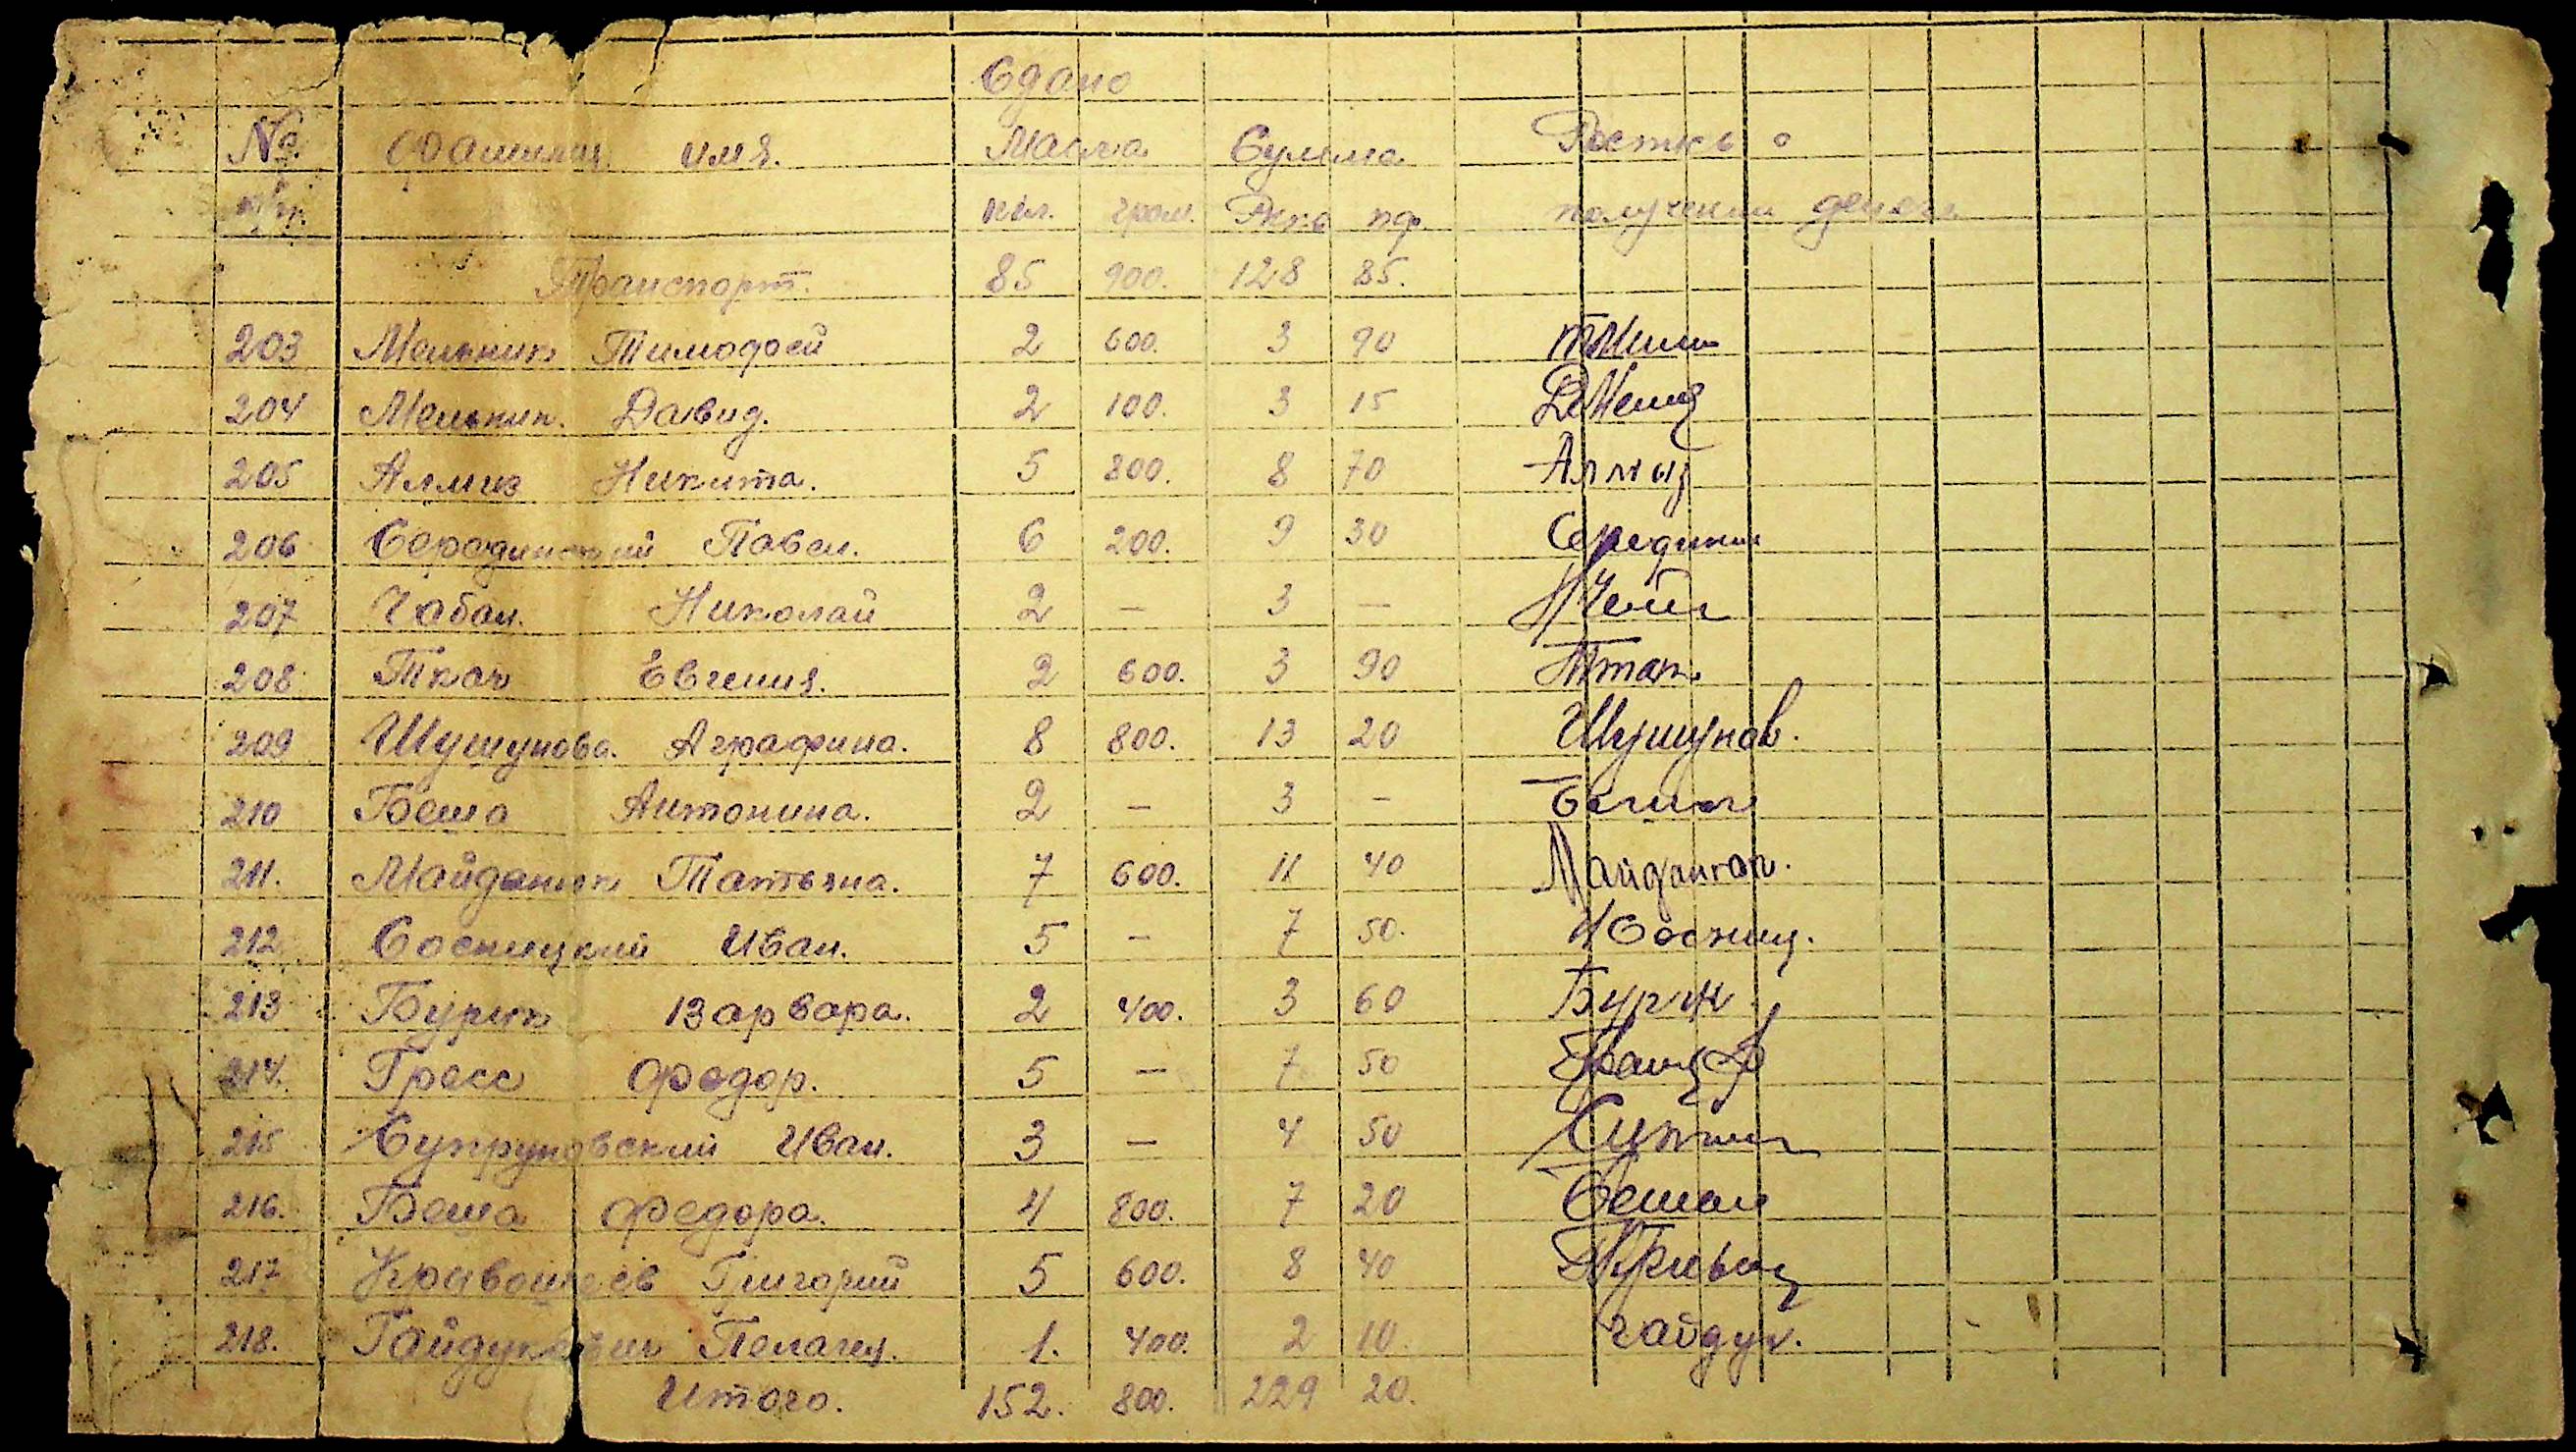 Сдано
№ Фамилия имя. Масла Сумма Роспись о
п/п. кил. грам. Ркс. пф. получении денег
Транспорт. 85 900. 128 85.
203 Мельник Тимофей 2 600. 3 90
204 Мельник. Давид. 2 100. 3 15
205 Алмыз Никита. 5 800. 8 70 Алмыз
206 Серединский Павел. 6 200. 9 30 Середини
207 Чабан. Николай 2 — 3 —
208 Ткач Евгения. 2 600. 3 90
209 Шушунова. Аграфина. 8 800. 13 20 Шушунов.
210 Беша Антонина. 2 — 3 —
211. Майданюк Татьяна. 7 600. 11 40
212 Сосницкий Иван. 5 — 7 50. ИСосниц.
213 Бурик Варвара. 2 400. 3 60
214. Гресс Федор. 5 — 7 50
215 Супруновский Иван. 3 — 4 50
216. Беша Федора. 4 800. 7 20
217 Григорий 5 600. 8 40
218. Пелагея. 1. 400. 2 10. гайдук.
Итого. 152. 800. 229 20.